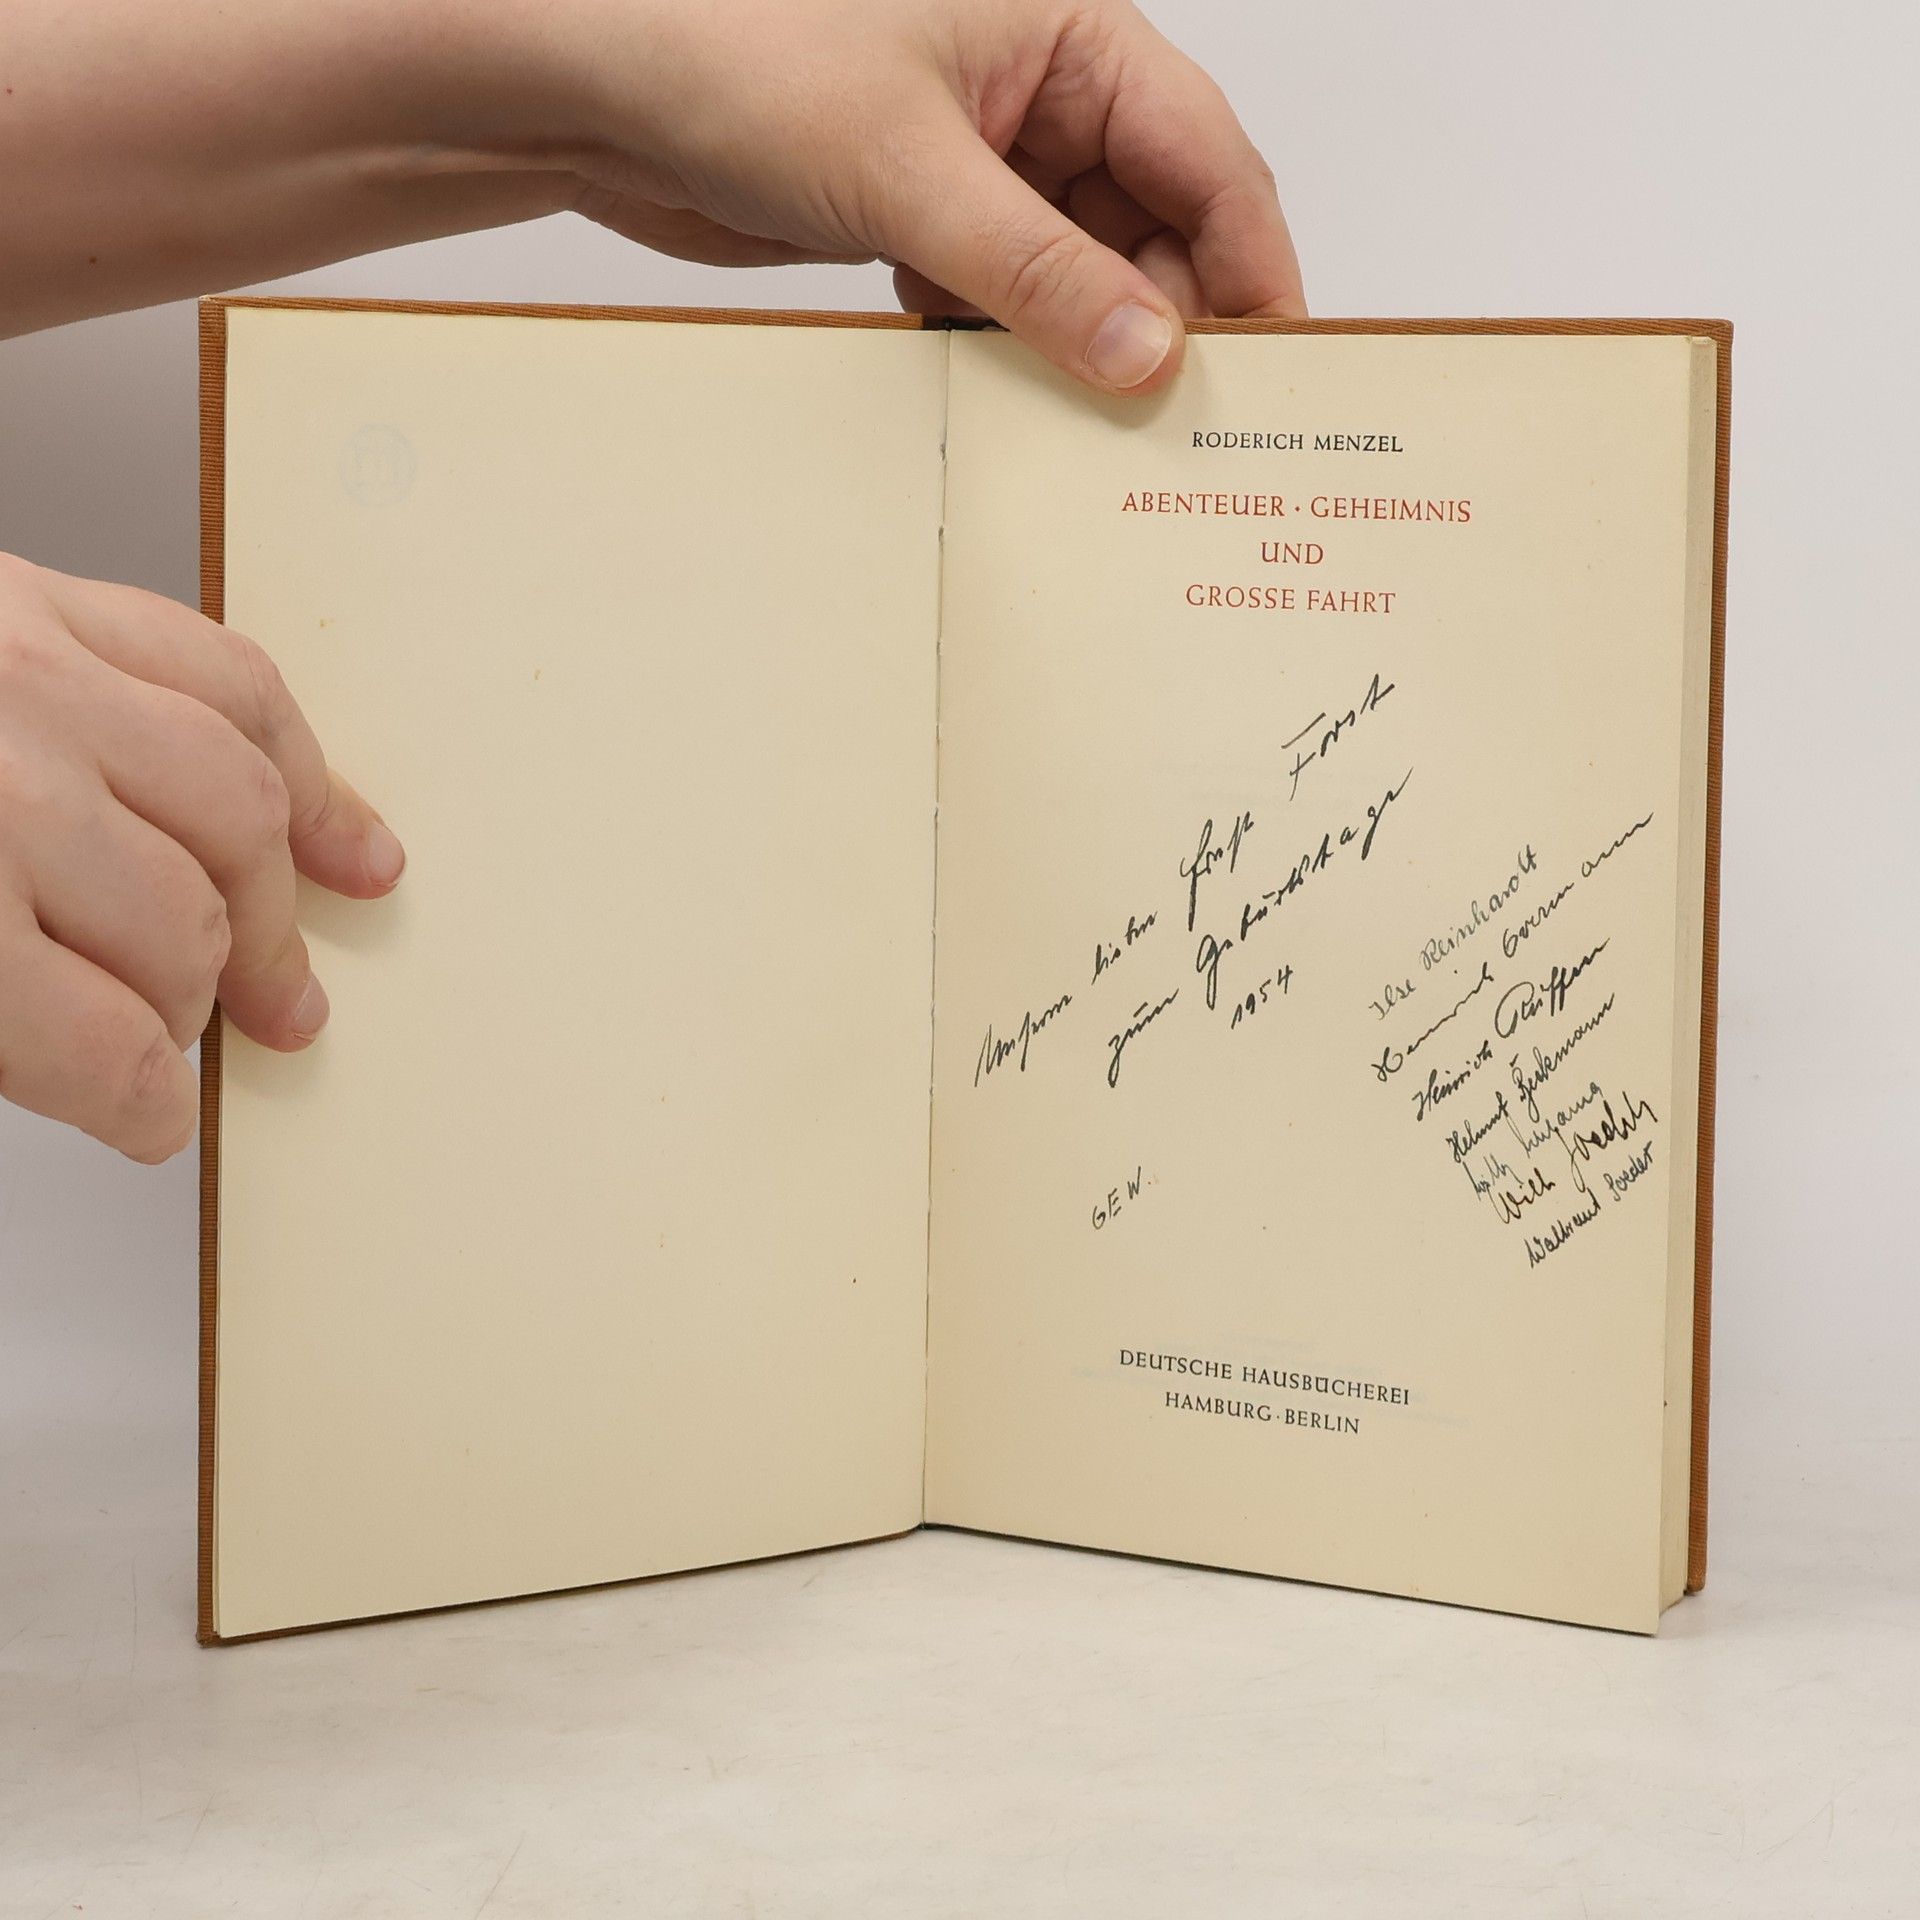 RODERICH MENZEL
ABENTEUER · GEHEIMNIS
UND
GROSSE FAHRT
Unserm lieben Ernst Forst
zum Geburtstage
1954
Ilse Reinhardt
Heinrich
Helmut Beckmann
Willi
Waltraut
GEW.
DEUTSCHE HAUSBÜCHEREI
HAMBURG · BERLIN